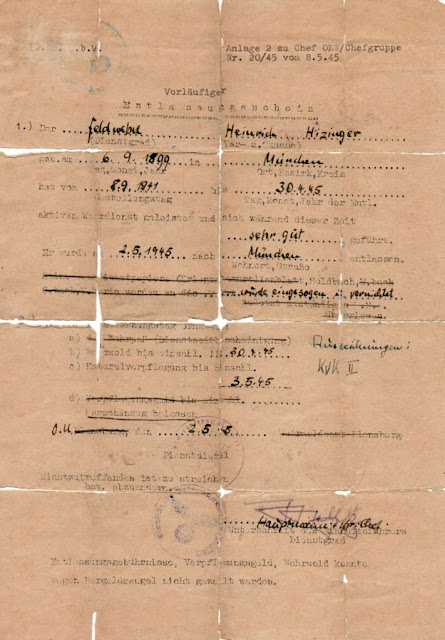 .b.V. Anlage 2 zu Chef OKW/Chefgruppe
Nr. 20/45 vom 8.5.45
Vorläufiger
Entlassungsschein
1.) Der Feldwebel Heinrich Hizinger
(Dienstgrad) Vor- u. Zuname)
geb.am 6. 9. 1899 in München
Ort, Bezirk, Kreis
hat vom 8.9.1941 bis 30.4.45
Tag, Monat, Jahr der Entl.
aktiven Wehrdienst geleistet und sich während dieser Zeit
sehr gut geführt.
Er wurde am 2.5.1945 nach München entlassen.
Wohnort, Straße
Soldbuch,
werden an die wurde eingezogen u. vernichtet
a) Auszeichnungen:
b) Wehrsold bis einschl. 30.4.45 KVK II
c) Naturalverpflegung bis einschl.
3.5.45
d)
belassen
O.U. den 2.5.45 Flensburg
Dienstsiegel
Nichtzutreffendes ist zu streichen
bzw. abzuändern
Hauptmann
Dienstgrad
Entlassungsgebührnisse, Verpflegungsgeld, Wehrsold konnte
wegen Bargeldmangel nicht gezahlt werden.